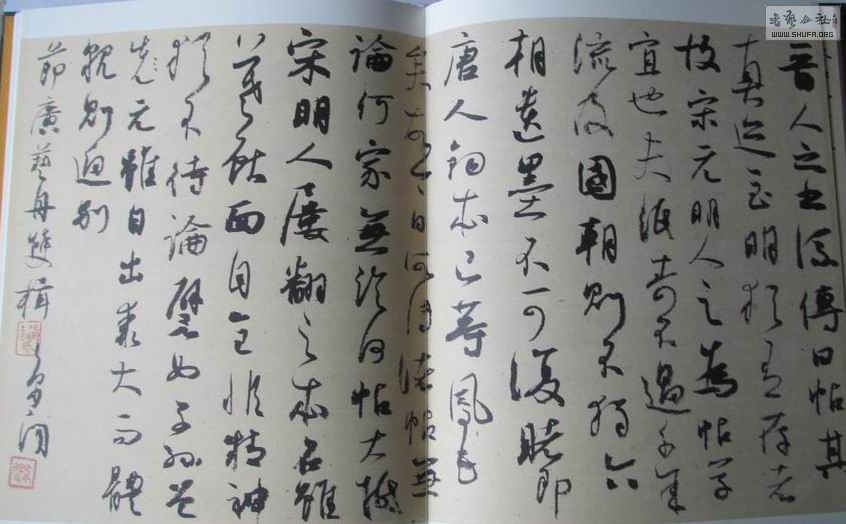 晉人之書流傳曰帖其
真迹至明猶有存者
故宋元明人之為帖學
宜也夫紙壽不過千年
流及國朝則不獨六
朝遺墨不可復睹即
唐人鉤本已等鳳毛
矣故今日所傳諸帖無
論何家無論何帖大抵
宋明人屢翻之本名雖
羲獻面目全非精神
猶不待論譬如子孫
雖自出而體
貌則迥別
節廣藝舟雙楫
WWW.SHUFA.ORG